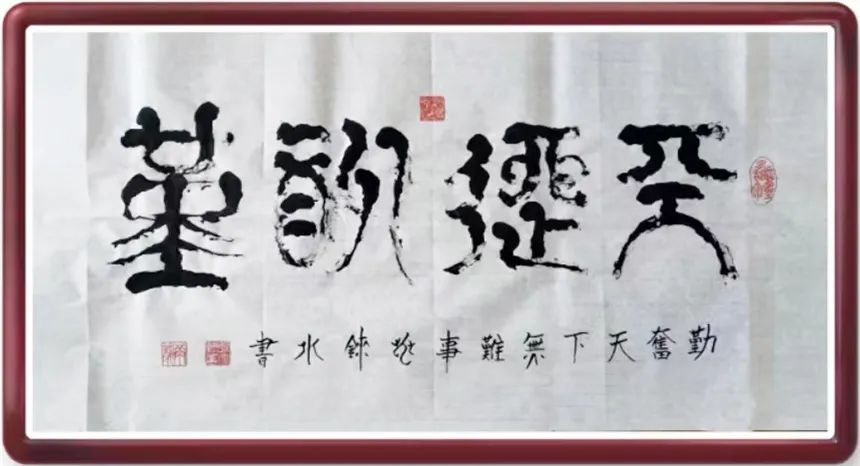 天道酬勤
勤奮天下無難事水書